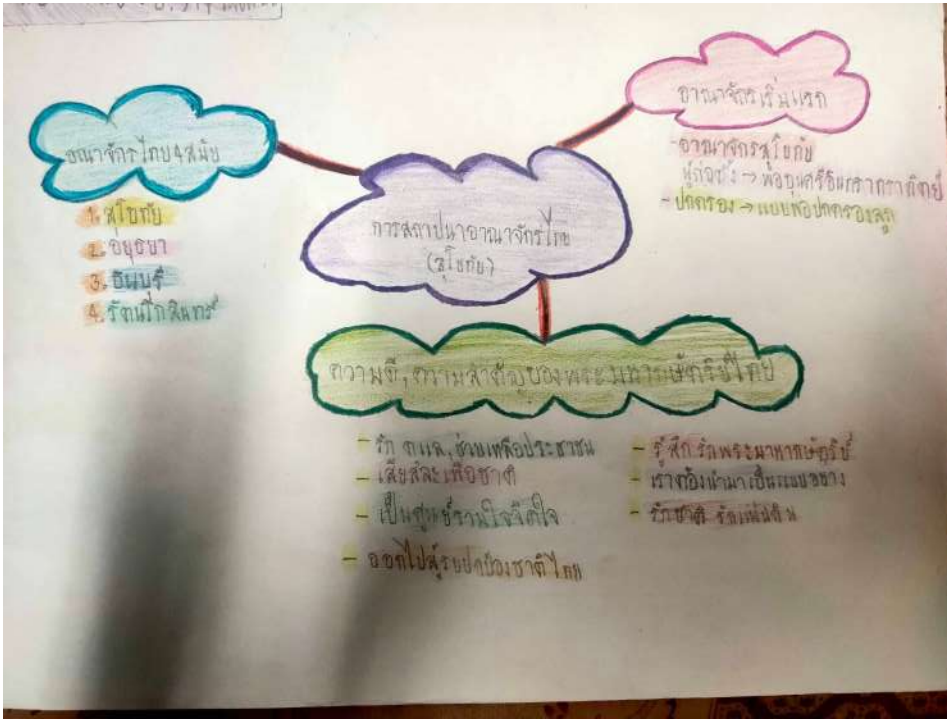 อณาจักรไทย4สมัย
1. สุโขทัย
2. อยุธยา
3. ธนบุรี
4. รัตนโกสินทร์
การสถาปนาอาณาจักรไทย
(สุโขทัย)
อาณาจักรเริ่มแรก
-อาณาจักรสุโขทัย
ผู้ก่อตั้ง → พ่อขุนศรีอินทราทิตย์
- ปกครอง → แบบพ่อปกครองลูก
ความดี, ความสำคัญของพระมหากษัตริย์ไทย
- รัก ดูแล, ช่วยเหลือประชาชน
- เสียสละเพื่อชาติ
- เป็นศูนย์รวมใจจิตใจ
- ออกไปสู้รบปกป้องชาติไทย
- รู้สึกรักพระมหากษัตริย์
- เราต้องนำมาเป็นแบบอย่าง
- รักชาติ รักแผ่นดิน